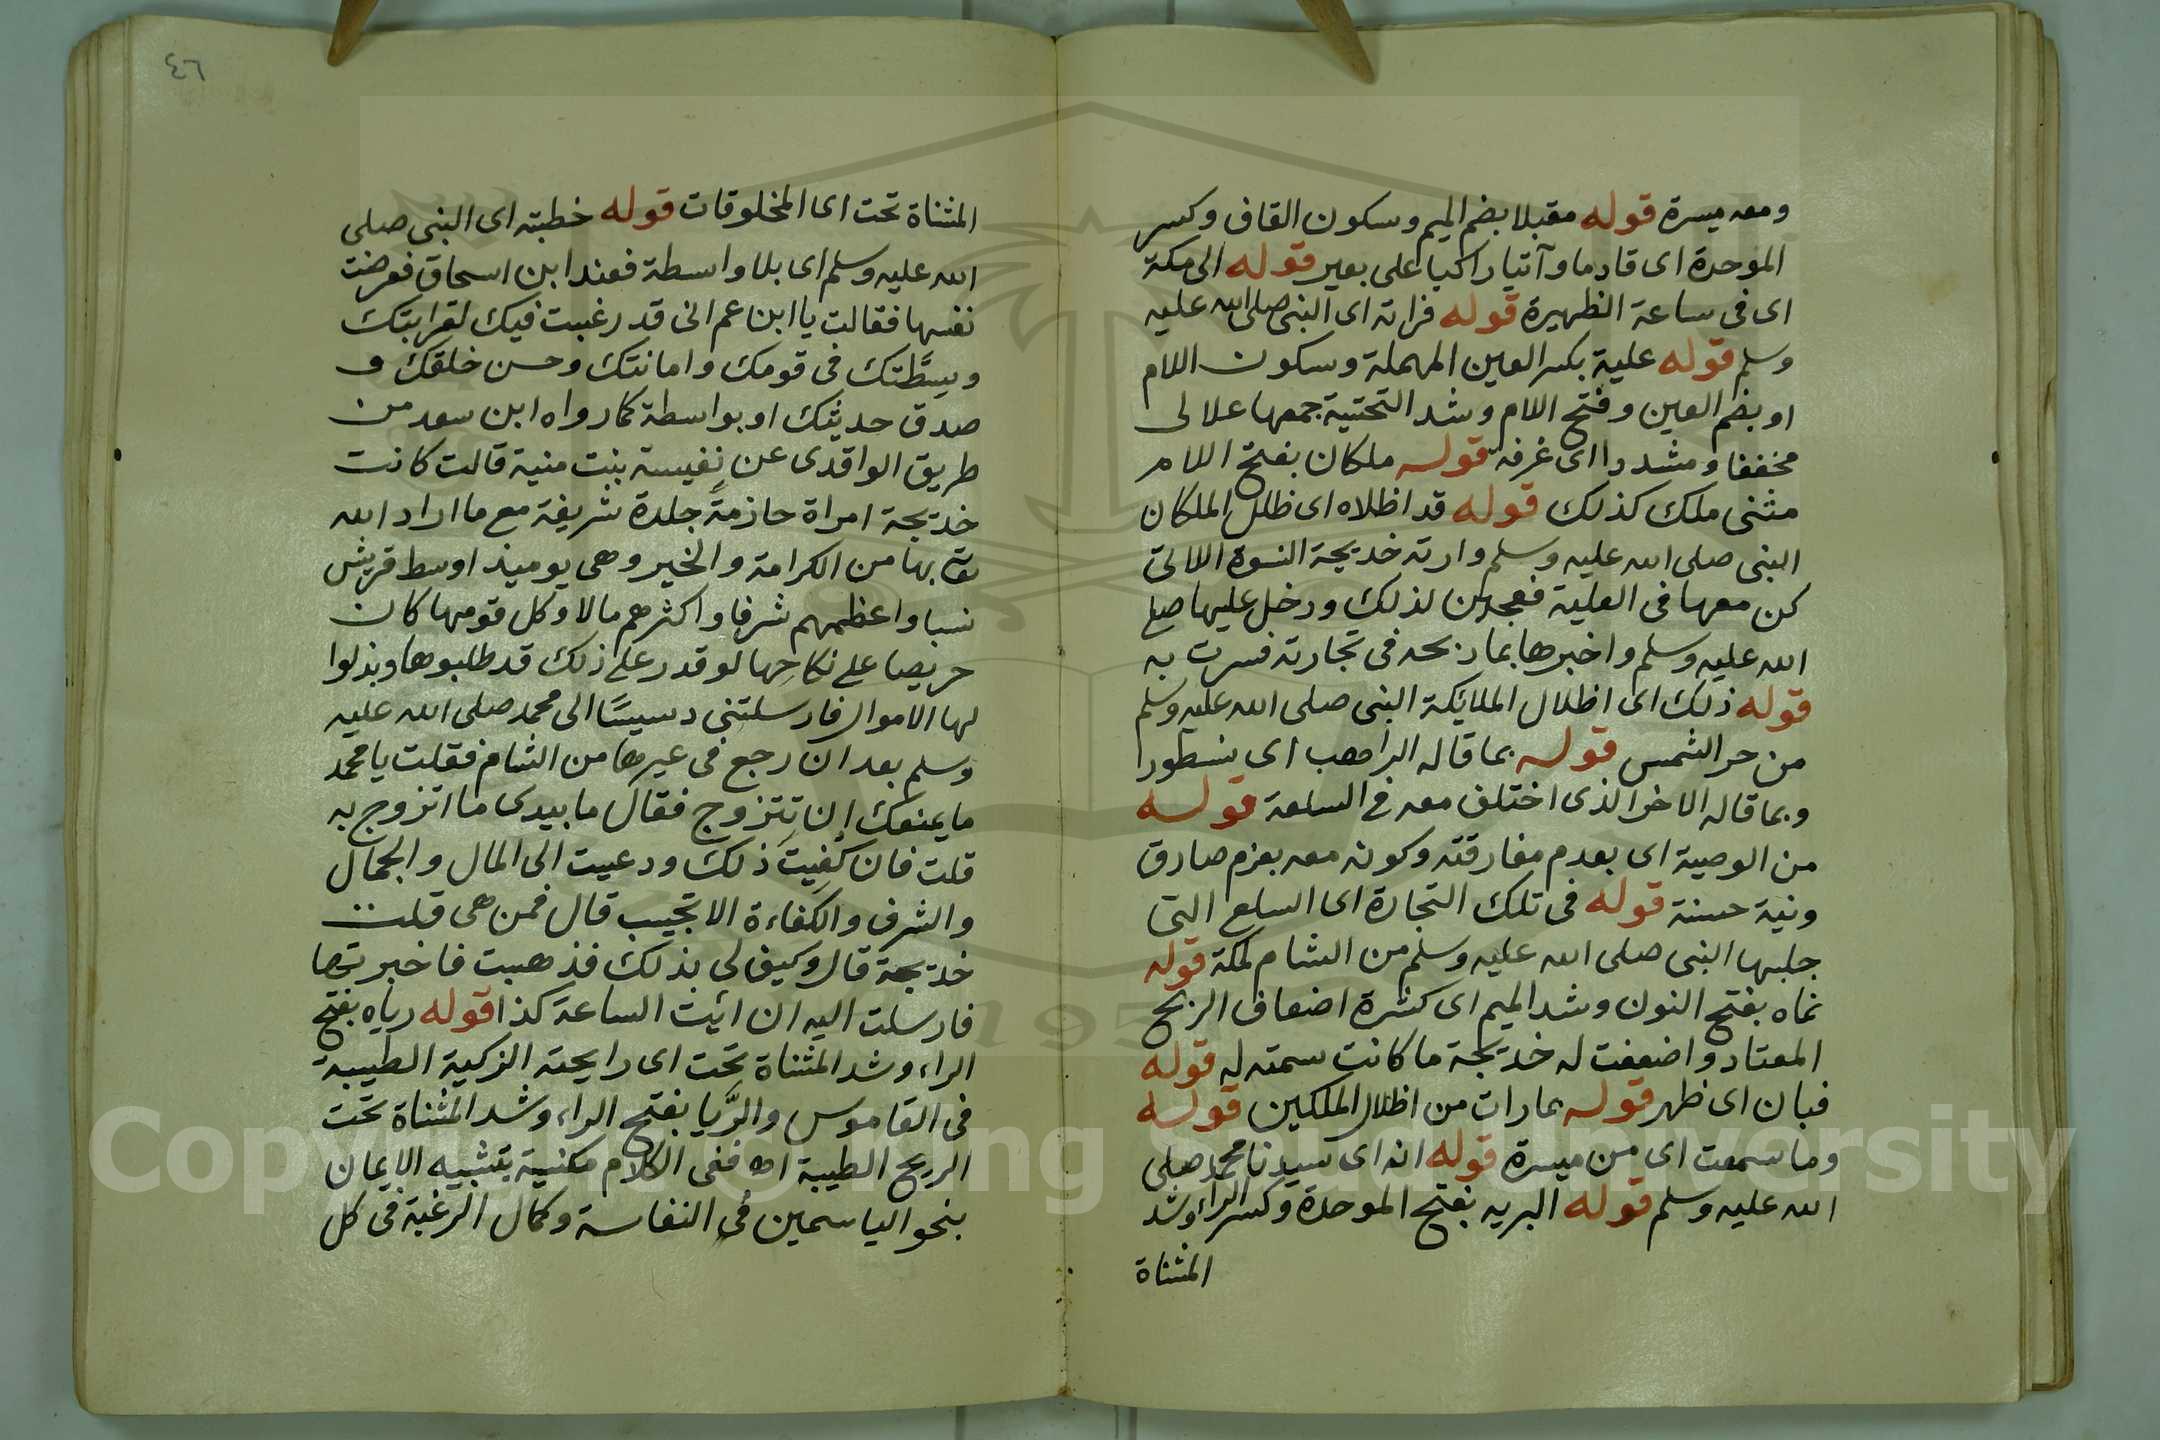 ومعه ميسرة قوله مقبلا بضم الميم وسكون القاف وكسر
الموحدة اى قادما وآتيا راكبا على بعير قوله الى مكة
اى فى ساعة الظهيرة قوله فراته اى النبى صلى الله عليه
وسلم قوله علية بكسر العين المهملة وسكون اللام
او بضم العين وفتح اللام وشد التحتية جمعها علالى
مخففا ومشددا اى غرفة قوله ملكان بفتح اللام
مثنى ملك كذلك قوله قد اظلاه اى ظلل الملكان
النبى صلى الله عليه وسلم وارته خديجة النسوة اللاتى
كن معها فى العلية فعجبن لذلك ودخل عليها صلى
الله عليه وسلم واخبرها بما ربحه فى تجارته فسرت به
قوله ذلك اى اظلال الملايكة النبى صلى الله عليه وسلم
من حر الشمس قوله بما قاله الراهب اى نسطورا
وبما قاله الاخر الذى اختلف معه فى السلعة قوله
من الوصية اى بعدم مفارقته وكونه معه بعزم صادق
ونية حسنة قوله فى تلك التجارة اى السلع التى
جلبها النبى صلى الله عليه وسلم من الشام لمكة قوله
نماه بفتح النون وشد الميم اى كثرة اضعاف الربح
المعتاد واضعفت له خديجة ما كانت سمته له قوله
فبان اى ظهر قوله بمارات من اظلال الملكين قوله
وما سمعت اى من ميسرة قوله انه اى سيدنا محمد صلى
الله عليه وسلم قوله البريه بفتح الموحدة وكسر الراء وشد
المثناة
٤٦
المثناة تحت اى المخلوقات قوله خطبته اى النبى صلى
الله عليه وسلم اى بلا واسطة فعند ابن اسحاق فعرضت
نفسها فقالت يا ابن عم انى قد رغبت فيك لقرابتك
وسِطَتك فى قومك وامانتك وحسن خلقك و
صدق حديثك او بواسطة كما رواه ابن سعد من
طريق الواقدى عن نفيسة بنت منية قالت كانت
خديجة امراة حازمة جلدة شريفة مع ما اراد الله
تعا بها من الكرامة والخير وهى يوميذ اوسط قريش
نسبا واعظمهم شرفا واكثرهم مالا وكل قومها كان
حريصا على نكاحها لو قدر على ذلك قد طلبوها وبذلوا
لها الاموال فارسلتنى دسيسًا الى محمد صلى الله عليه
وسلم بعد ان رجع فى عيرها من الشام فقلت يا محمد
ما يمنعك ان تتزوج فقال ما بيدى ما اتزوج به
قلت فان كُفِيتَ ذلك ودعيت الى المال والجمال
والشرف والكفاءة الا تجيب قال فمن هى قلت
خديجة قال وكيف لى بذلك فذهبت فاخبرتها
فارسلت اليه ان ائت الساعة كذا قوله رياه بفتح
الراء وشد المثناة تحت اى رايحته الزكية الطيبة
فى القاموس والرَّيا بفتح الراء وشد المثناة تحت
الريح الطيبة اه ففى الكلام مكنية بتشبيه الايمان
بنحو الياسمين فى النفاسة وكمال الرغبة فى كل
Copyright © King Saud University